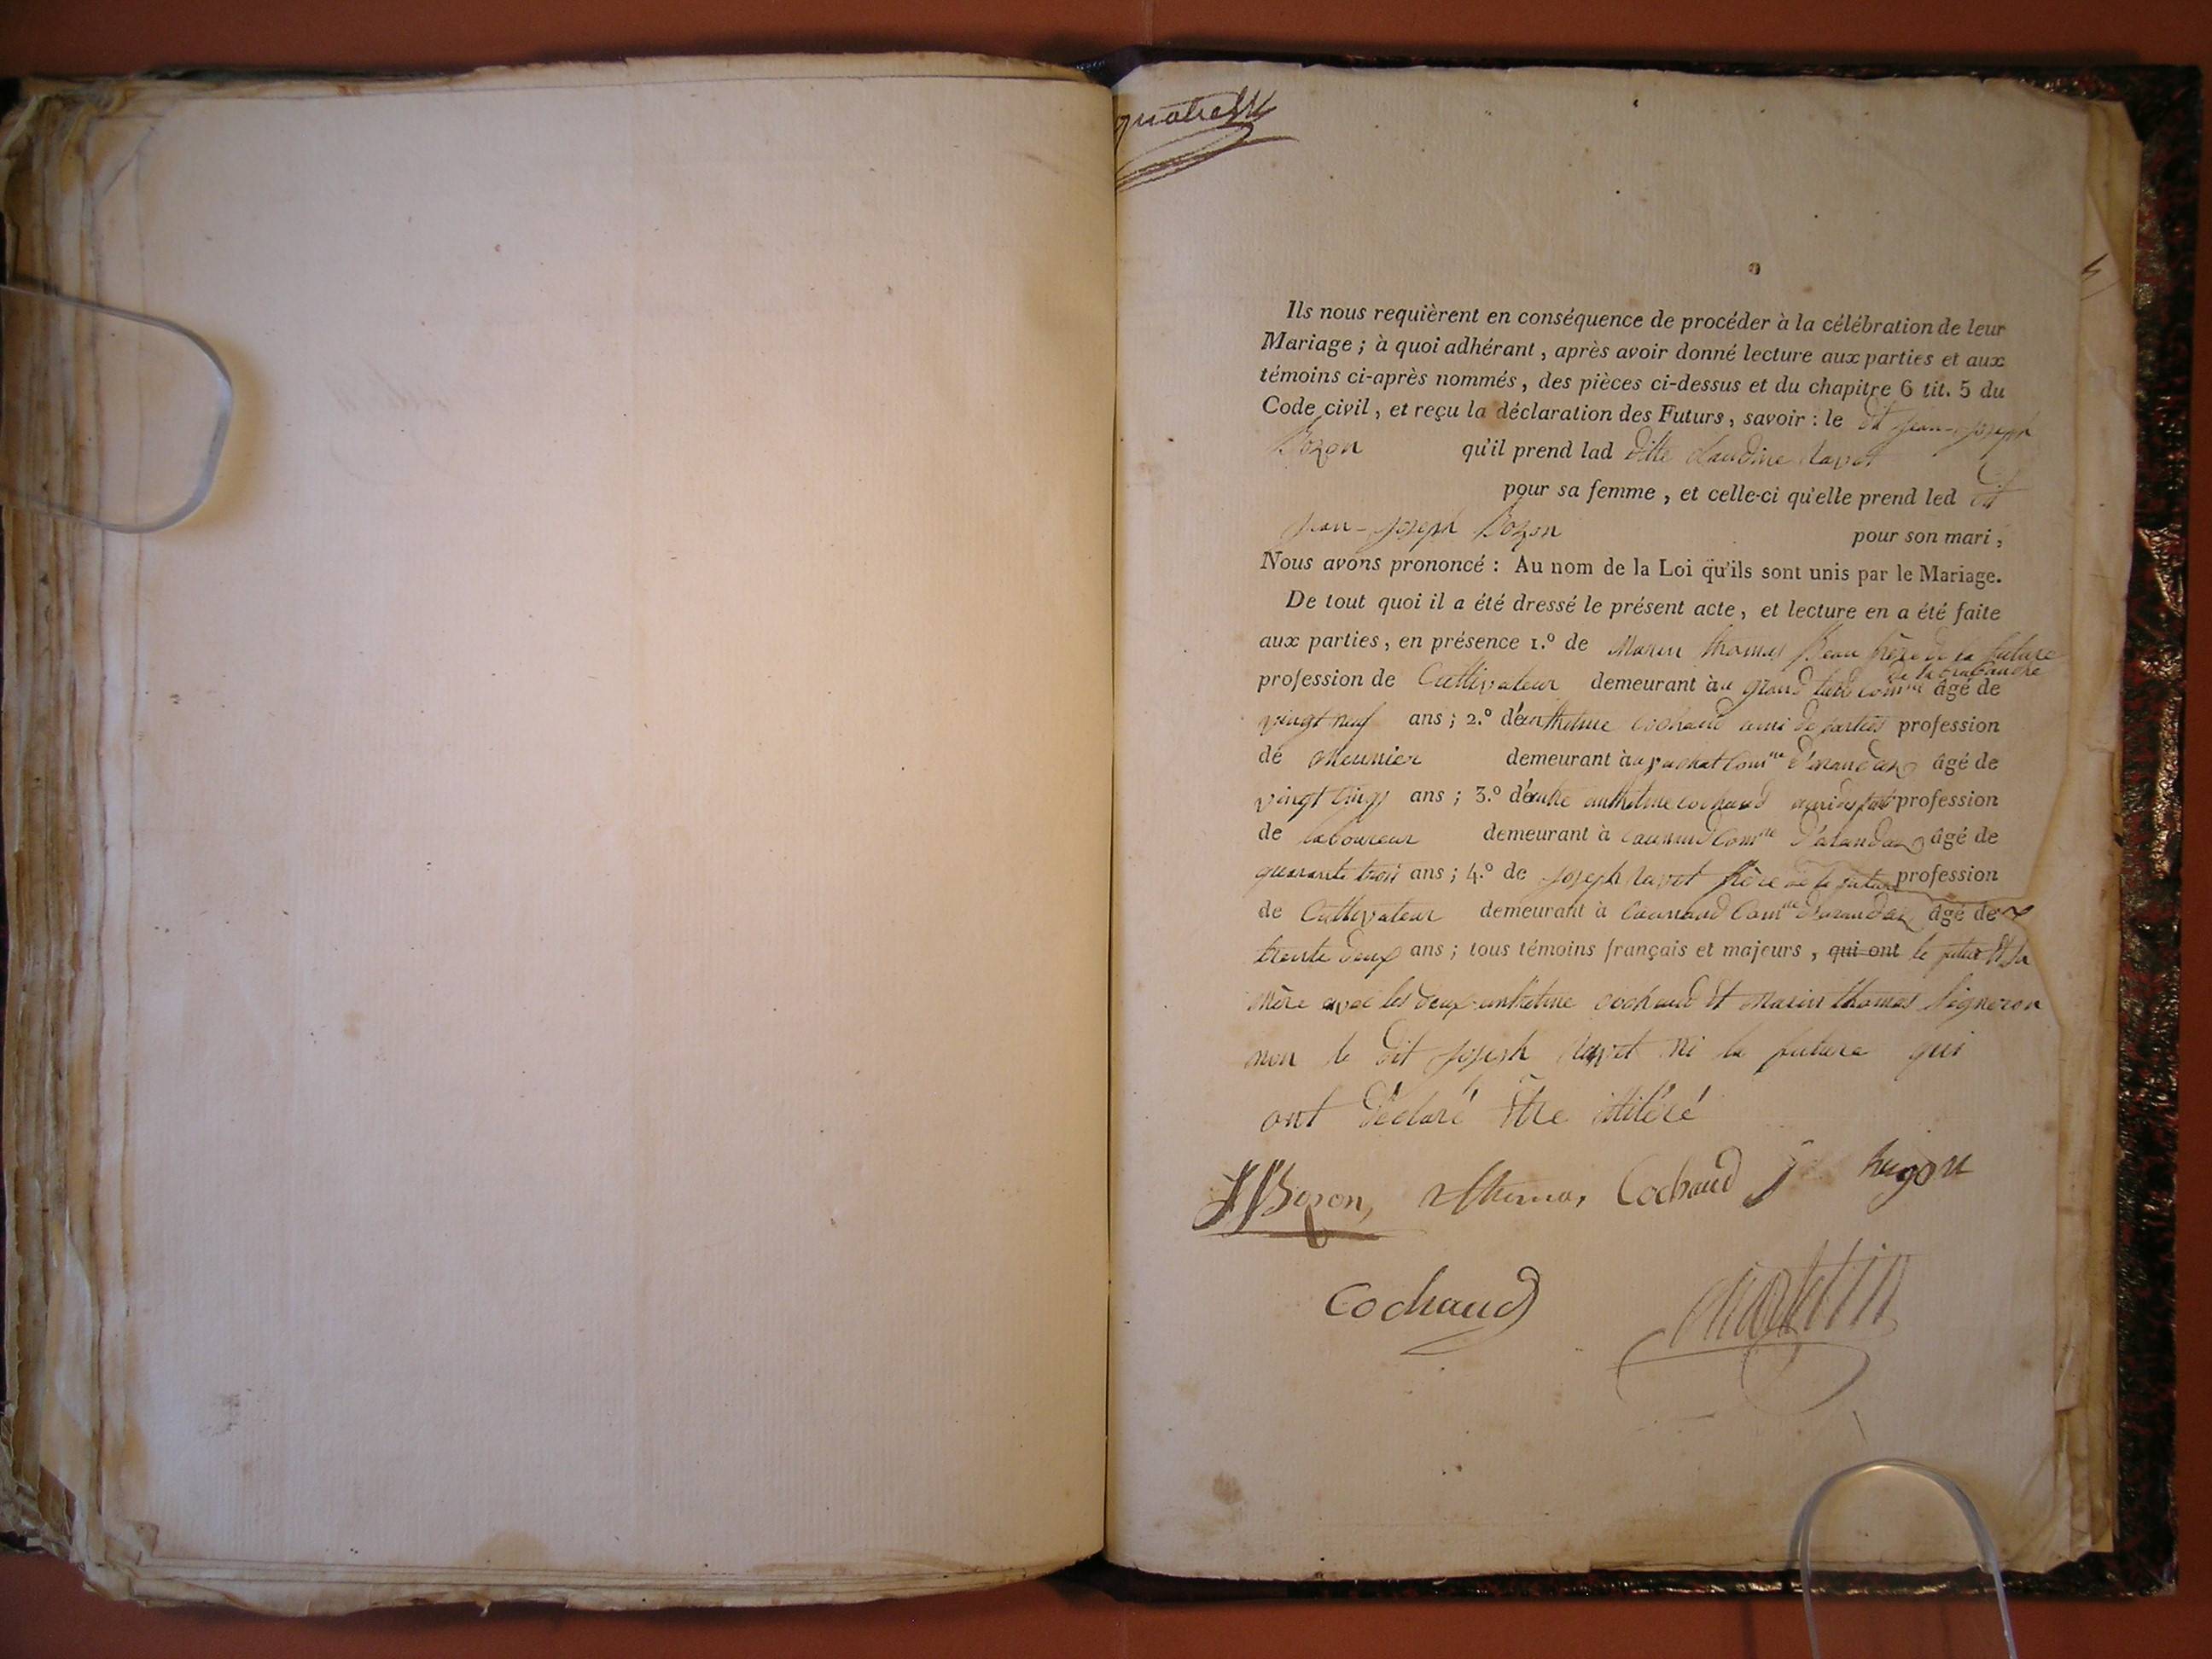 quatre
Ils nous requièrent en conséquence de procéder à la célébration de leur
Mariage ; à quoi adhérant , après avoir donné lecture aux parties et aux
témoins ci-après nommés , des pièces ci-dessus et du chapitre 6 tit. 5 du
Code civil , et reçu la déclaration des Futurs , savoir : le dit jean-joseph
Bozon qu'il prend lad ditte claudine Navet
pour sa femme , et celle-ci qu'elle prend led dit
jean-joseph Bozon pour son mari ,
Nous avons prononcé : Au nom de la Loi qu'ils sont unis par le Mariage.
De tout quoi il a été dressé le présent acte, et lecture en a été faite
aux parties, en présence 1.º de Marin thomas Beau frère de la future
profession de Cultivateur demeurant à au grand comne âgé de
vingt neuf ans ; 2.º d'anthelme cochaud ami de parties profession
de Meunier demeurant à comne d'arandas âgé de
vingt cinq ans ; 3.º d'autre anthelme cochaud profession
de laboureur demeurant à comne d'arandas âgé de
quarante trois ans ; 4.º de joseph Navet frère de la future profession
de Cultivateur demeurant à comne d'arandas âgé de
trente deux ans ; tous témoins français et majeurs , qui ont le futur et sa
mère avec les deux anthelme cochaud et marin thomas signeron
non le dit joseph Navet ni la future qui
ont déclaré être illitéré
JJBozon, mthomas, Cochaud hugon
Cochaud martin